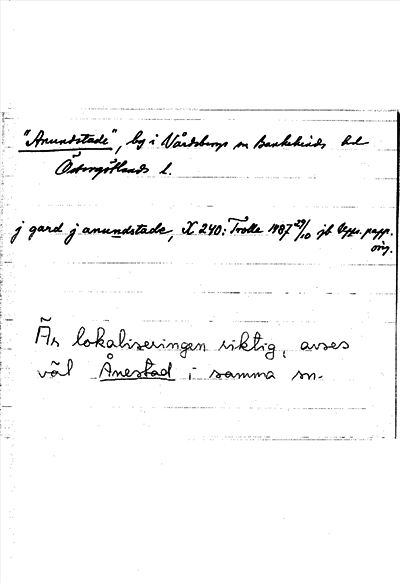 "Anundstade", by i Vårdsbergs sn Bankekinds hd
Östergötlands l.
j gard j anundstade, X 240: Trolle 1487 29/10 jb Upps. papp.
orig.
Är lokaliseringen riktig, avses
väl Ånestad i samma sn.